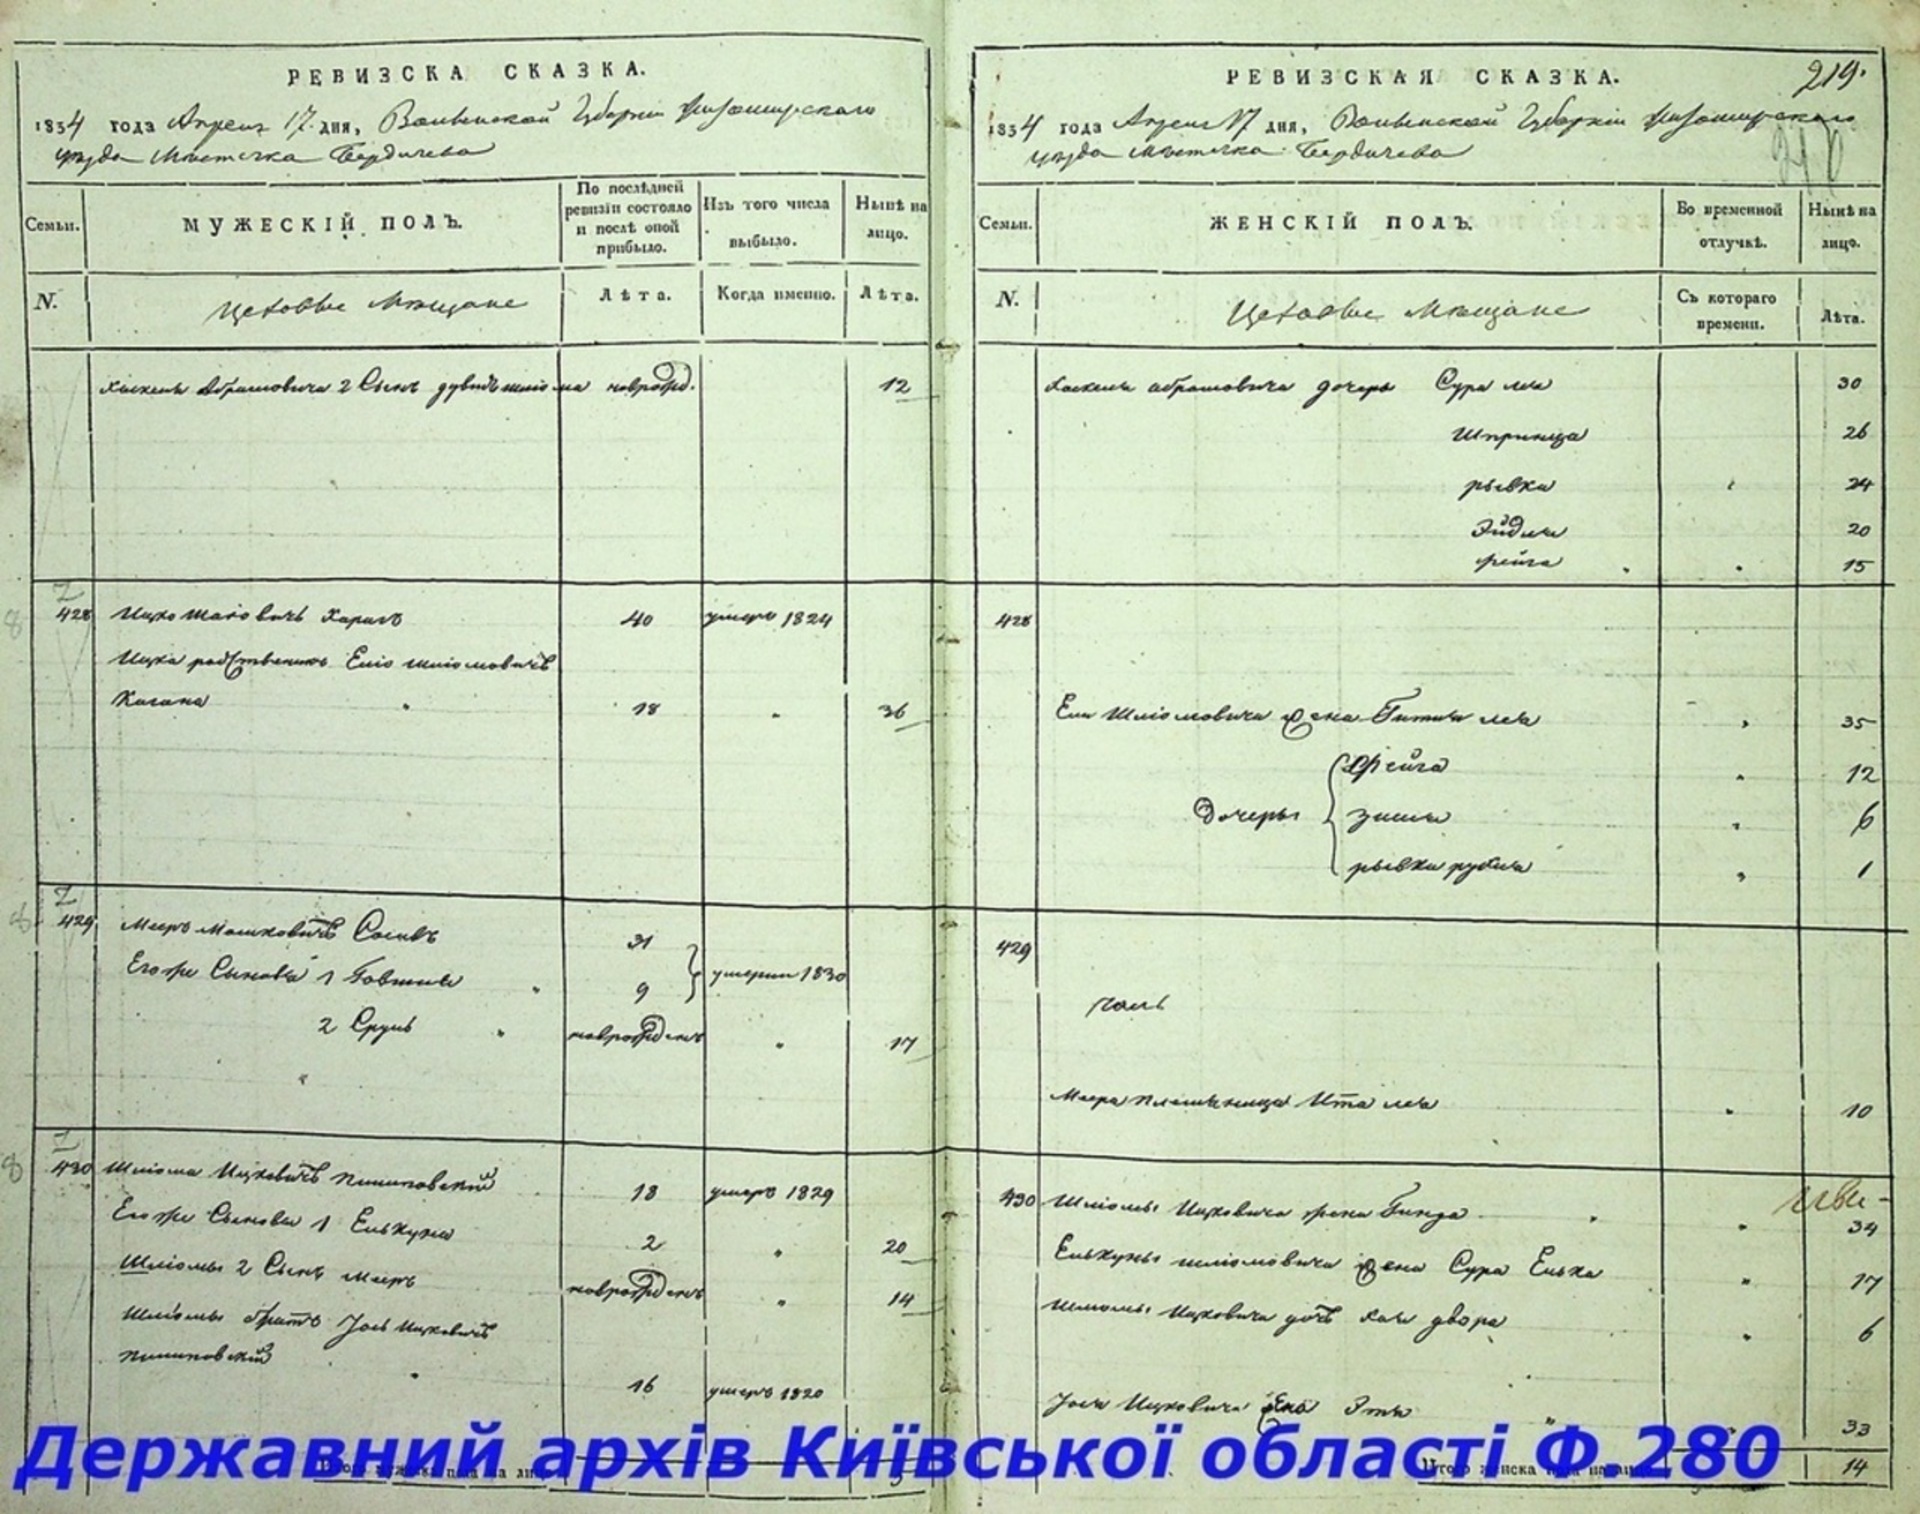 РЕВИЗСКА СКАЗКА.
1834 года Апреля 17 дня, Волынской Губернии Житомирского
уезда Местечка Бердичева
Семьи.
МУЖЕСКІЙ ПОЛЪ.
По послѣдней ревизіи состояло и послѣ оной прибыло.
Изъ того числа выбыло.
Нынѣ на лицо.
N.
Цеховые Мещане
Лѣта.
Когда именно.
Лѣта.
Хаскеля Абрамовича 2 Сынъ новрожд. 12
428 Ицко Хариъ 40 умеръ 1824
Ицка родственникъ Еліо Шліомовичъ
Кагана 18 " 36
429 Мееръ Мошковичъ 31
Его же Сыновья 1 9 умерли 1830
2 Сруль " новрожденъ " 17
430 Шліома Ицковичъ 18 умеръ 1829
Его же Сыновья 1 Елькуна 2 " 20
Шліомы 2 Сынъ Мееръ новрожденъ " 14
Шліомы братъ Іось Ицковичъ
16 умеръ 1820
РЕВИЗСКАЯ СКАЗКА.
219.
1834 года Апреля 17 дня, Волынской Губерніи Житомирского
уезда Местечка Бердичева
Семьи.
ЖЕНСКІЙ ПОЛЪ.
Во временной отлучкѣ.
Нынѣ на лицо.
N.
Цеховые Мещане
Съ котораго времени.
Лѣта.
Хаскеля Абрамовича дочери Сура Леа 30
Шпринца 26
рывка 24
Эйдля 20
фейга 15
428
Ели Шліомовича жена Гитля леа " 35
Дочеры Фейга " 12
зисля " 6
рывка рухля " 1
429
Меера племяница Ита леа " 10
430 Шліомы Ицковича жена Гинда " 34
Елькуны шліомовича жена Сура Елька " 17
Шліомы Ицковича дочь Хая двора " 6
Іося Ицковича жена Этя " 33
14
Державний архів Київської області Ф.280